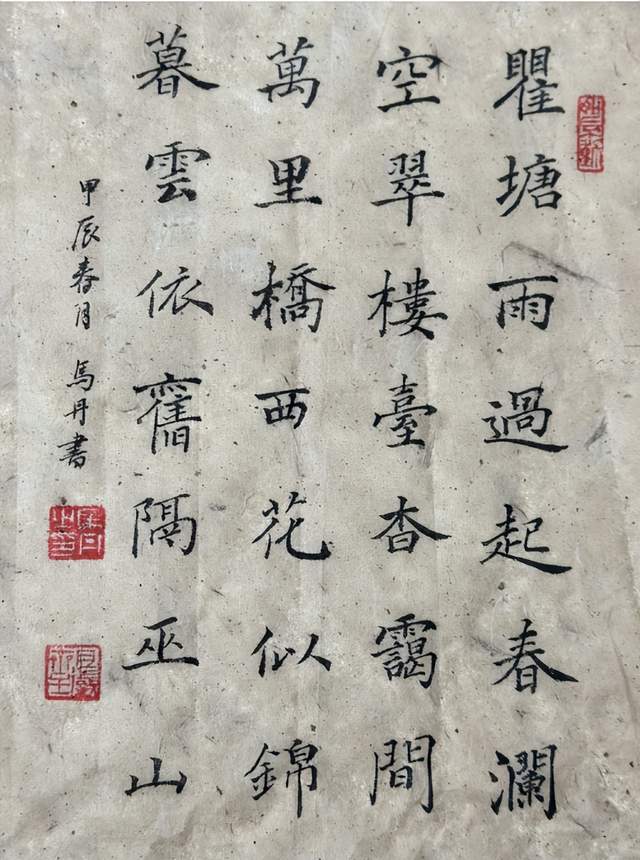 瞿塘雨過起春瀾
空翠樓臺杳靄間
萬里橋西花似錦
暮雲依舊隔巫山
甲辰春月 馬丹書